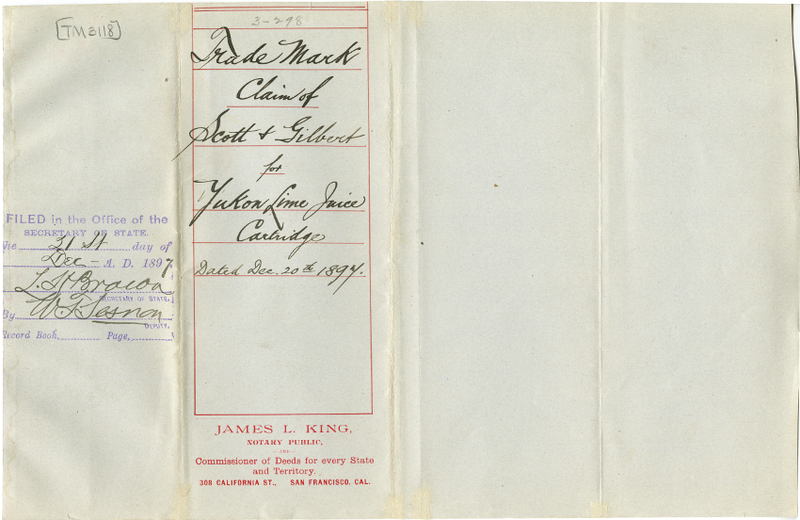 [TM3118]
FILED in the Office of the
SECRETARY OF STATE.
the 21st day of
Dec - A. D. 1897
L. H Brown
SECRETARY OF STATE.
By W. T. Sesnon
DEPUTY.
Record Book, Page,
3-298
Trade Mark
Claim of
Scott & Gilbert
for
Yukon Lime Juice
Cartridge
Dated Dec. 20th 1897.
JAMES L. KING,
NOTARY PUBLIC,
Commissioner of Deeds for every State
and Territory.
308 CALIFORNIA ST., SAN FRANCISCO, CAL.